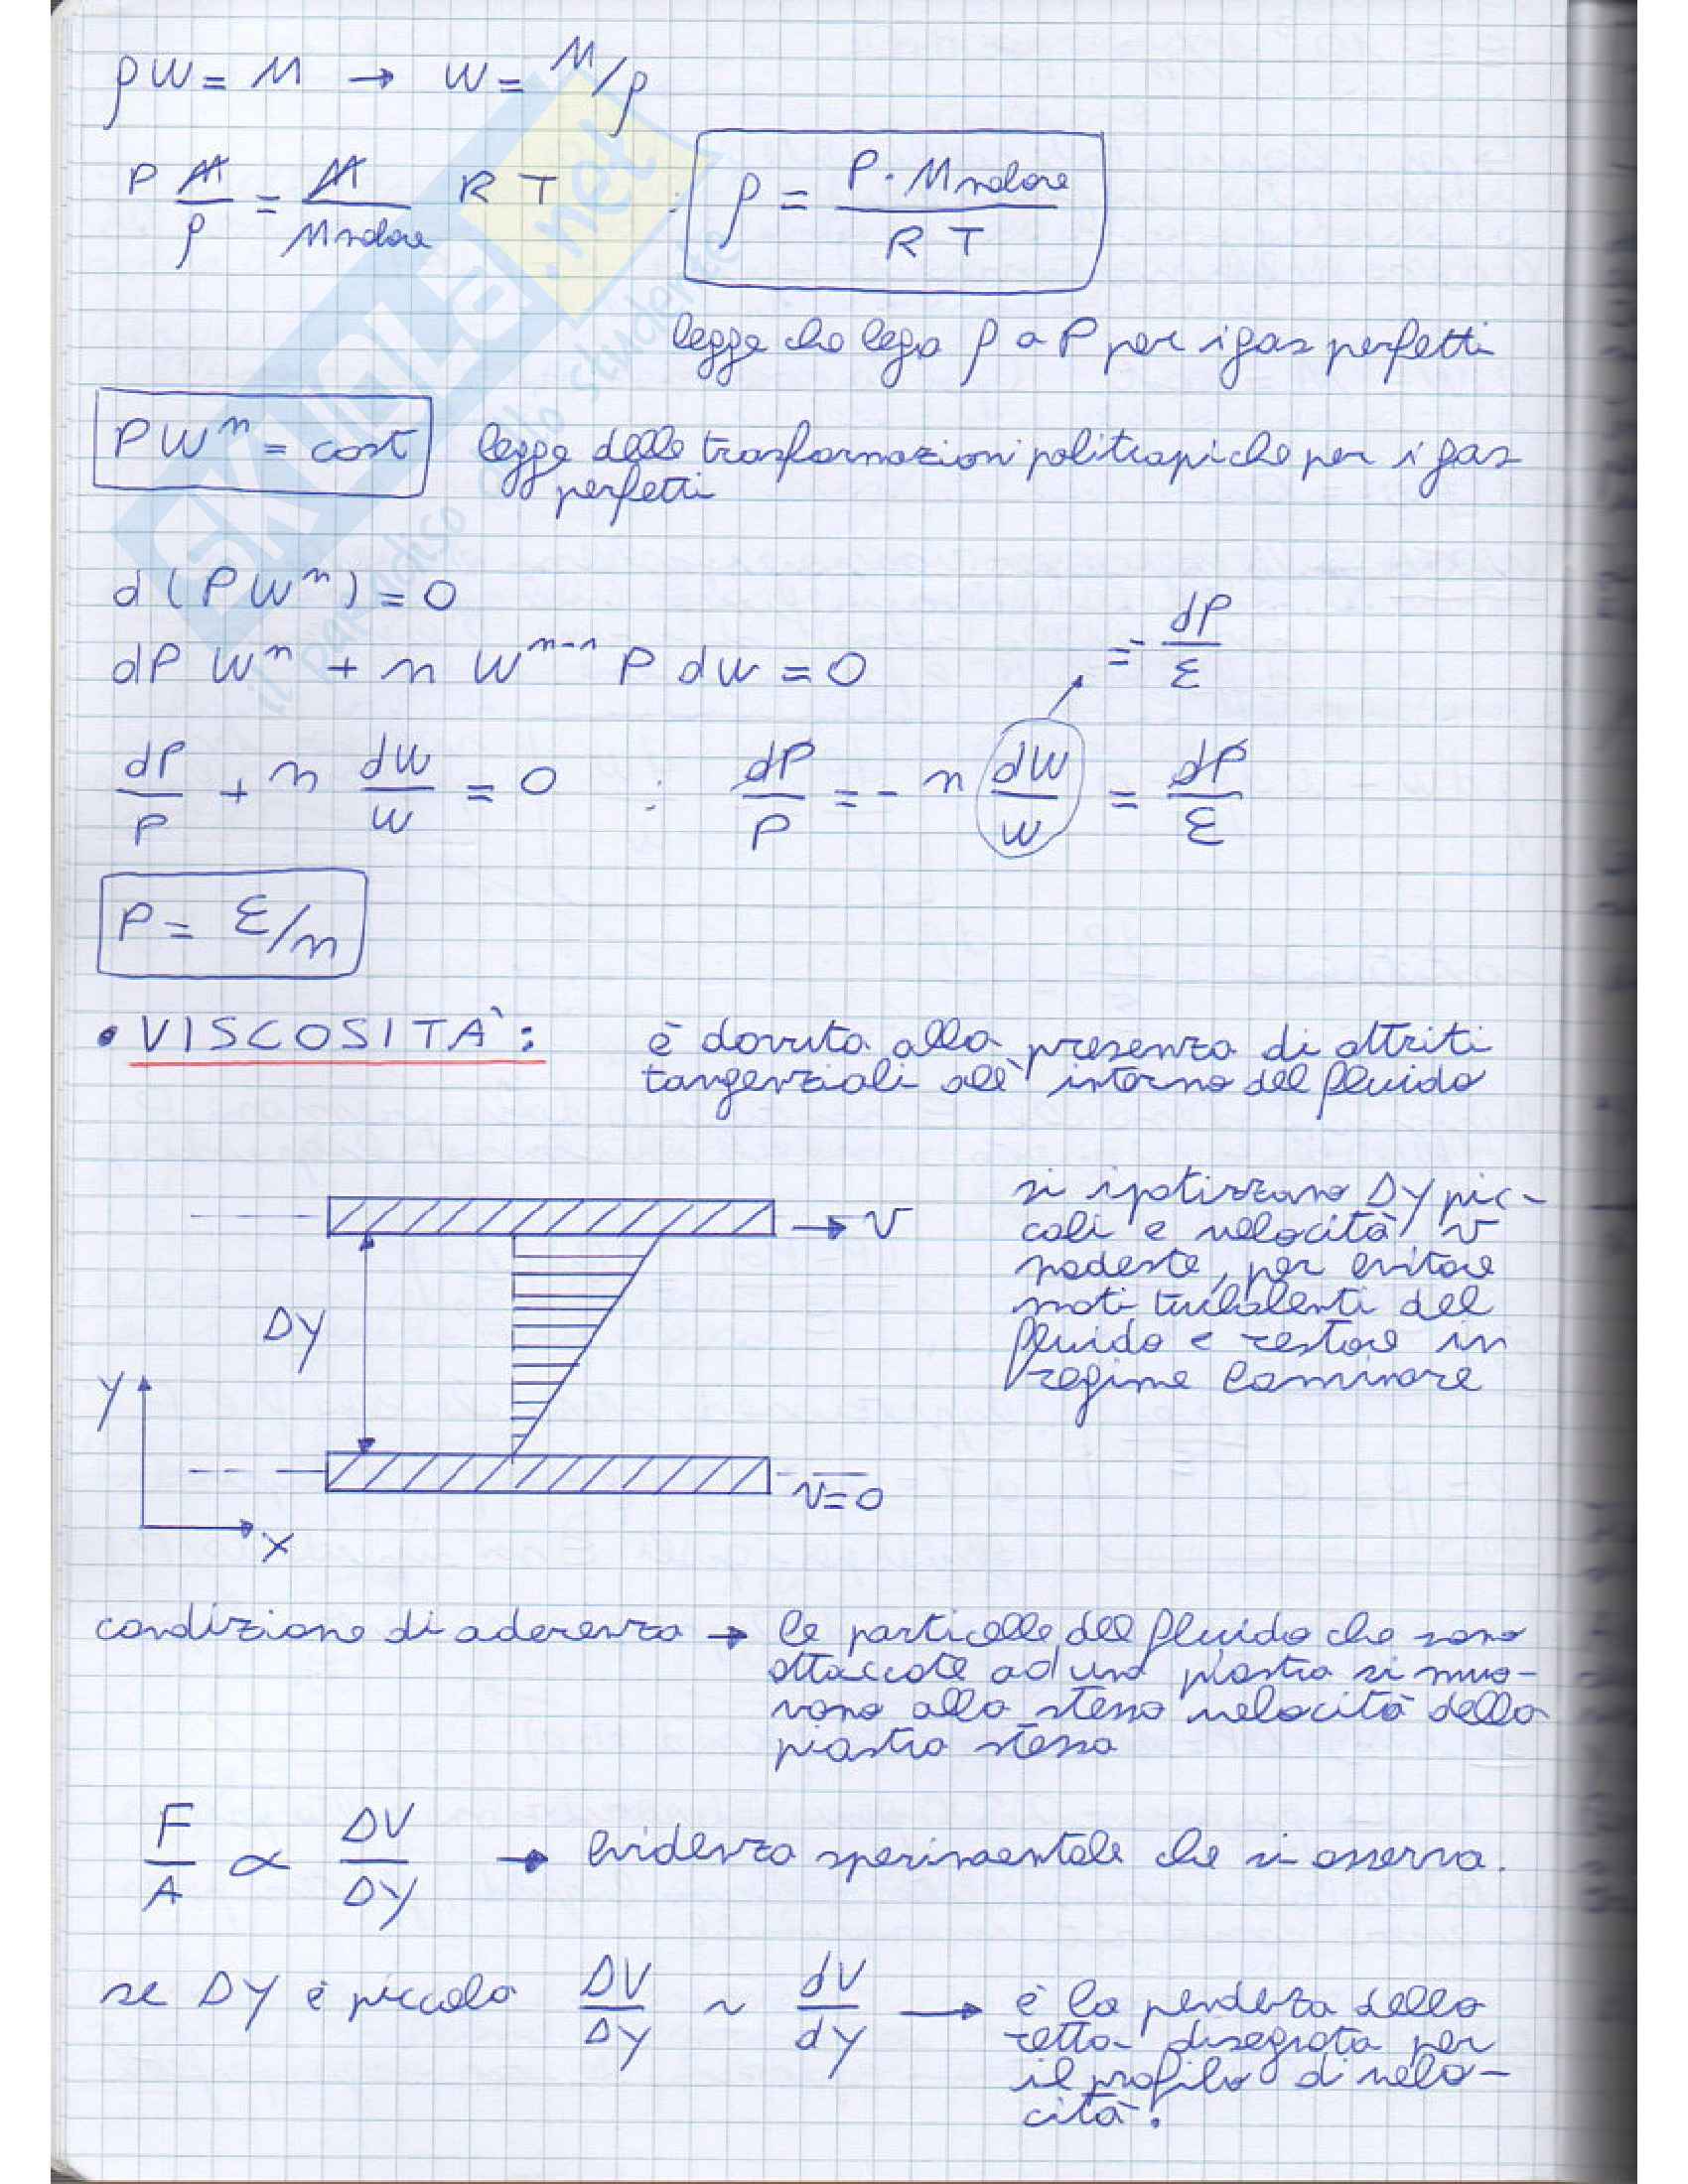 ρW = M → W = M/ρ
P M/ρ = M/Mmolare R T : ρ = P · Mmolare / R T
legge che lega ρ a P per i gas perfetti
PWⁿ = cost legge delle trasformazioni politropiche per i gas
perfetti
d(PWⁿ) = 0
dP Wⁿ + n Wⁿ⁻¹ P dW = 0 = - dP/ε
dP/P + n dW/W = 0 : dP/P = - n dW/W = dP/ε
P = ε/n
• VISCOSITÀ: è dovuta alla presenza di attriti
tangenziali all'interno del fluido
si ipotizzano ΔY pic-
coli e velocità v
modeste, per evitare
moti turbolenti del
fluido e restare in
regime laminare
v
ΔY
Y
v=0
X
condizione di aderenza → le particelle del fluido che sono
attaccate ad una piastra si muo-
vono alla stessa velocità della
piastra stessa
F/A ∝ ΔV/ΔY → evidenza sperimentale che si osserva.
se ΔY è piccolo ΔV/ΔY ~ dV/dY → è la pendenza della
retta disegnata per
il profilo di velo-
cità.
SKUOLA.net
il paradiso dello studente